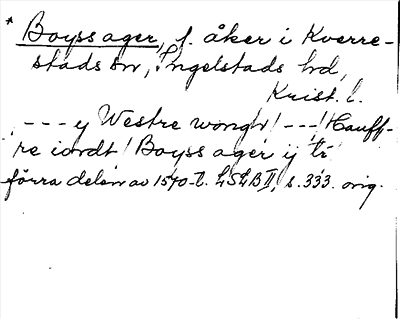 * Boyss ager, f. åker i Kverre-
stads sn, Ingelstads hd,
Krist. l.
--- y Westre wongh! ---! Hauff-
re iordt! Boyss ager ij tr
förra delen av 1570-t. LSLB II, s. 333. orig.